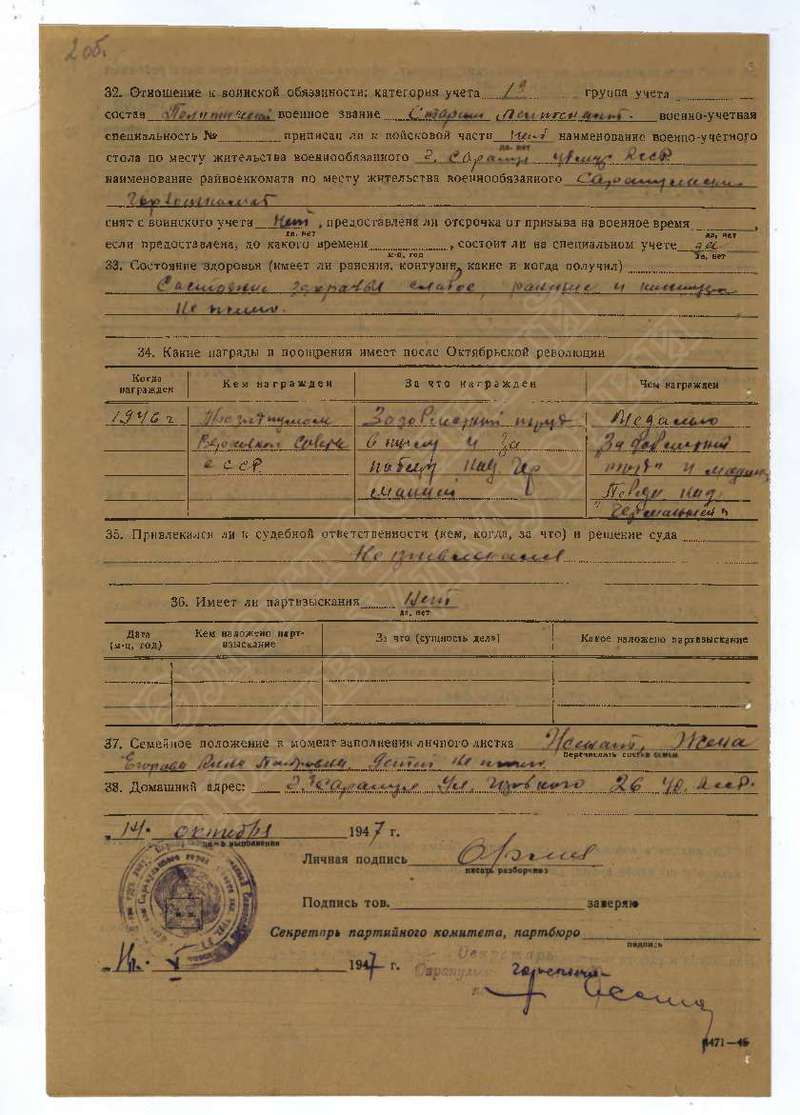 2 об.
32. Отношение к воинской обязанности: категория учета 1я группа учета
состав Политический военное звание Старший Лейтенант. военно-учетная
специальность № приписан ли к войсковой части нет наименование военно-учетного
да, нет
стола по месту жительства военнообязанного г. Сарапул
наименование райвоенкомата по месту жительства военнообязанного Сарапульский
Горвоенкомат
снят с воинского учета нет, предоставлена ли отсрочка от призыва на военное время ,
да, нет да, нет
если предоставлена, до какого времени , состоит ли на специальном учете да
м-ц, год да, нет
33. Состояние здоровья (имеет ли ранения, контузии, какие и когда получил)
Состояние здоровья слабое, ранение и контузия
Не имею.
34. Какие награды и поощрения имеет после Октябрьской революции
Когда награжден Кем награжден За что награжден Чем награжден
1946 г Президиумом За доблестный труд Медалью
Верховного Совета в тылу и за За доблестный
СССР победу над Гер труд и медаль
манией Победа над
"Германией"
35. Привлекался ли к судебной ответственности (кем, когда, за что) и решение суда
Не привлекался
36. Имеет ли партвзыскания Нет
да, нет
Дата (м-ц, год) Кем наложено парт-взыскание За что (сущность дела) Какое наложено партвзыскание
37. Семейное положение в момент заполнения личного листка Женат, Жена
перечислить состав семьи
Егорова Петровна, детей не имею
38. Домашний адрес: г. Сарапул ул. 26
14 октября 1947 г.
дата заполнения
Личная подпись
писать разборчиво
Подпись тов. заверяю
Секретарь партийного комитета, партбюро
подпись
1947 г.
Секретарь